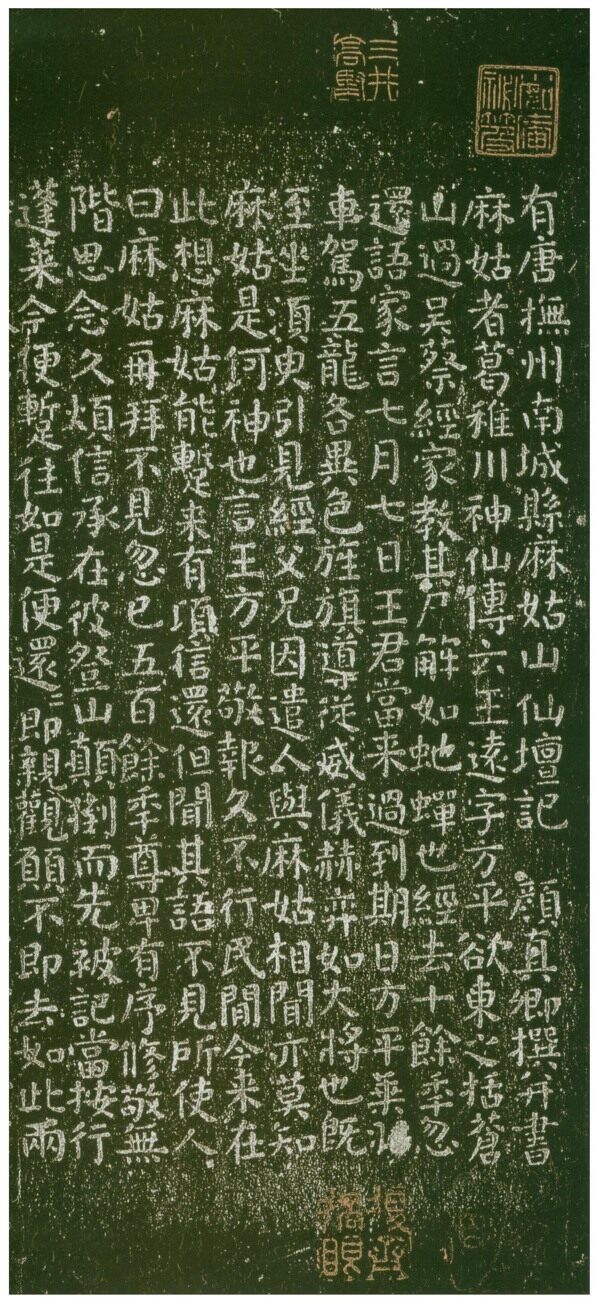 有唐撫州南城縣麻姑山仙壇記 顏真卿撰并書
麻姑者葛稚川神仙傳云王遠字方平欲東之括蒼
山過吳蔡經家教其尸解如虵蟬也經去十餘秊忽
還語家言七月七日王君當来過到期日方平乗
車駕五龍各異色旌旗導従威儀赫弈如大將也既
至坐須臾引見經父兄因遣人與麻姑相聞亦莫知
麻姑是何神也言王方平敬報久不行民間今来在
此想麻姑能蹔来有頃信還但聞其語不見所使人
曰麻姑再拜不見忽已五百餘秊尊卑有序修敬無
階思念久煩信承在彼登山顛倒而先被記當按行
蓬莱今便蹔往如是便還〻即親觀願不即去如此兩
三井高堅